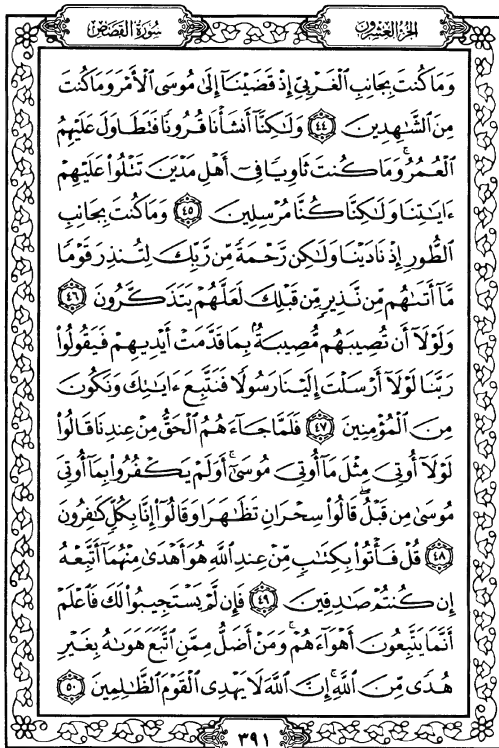 سُورَةُ القَصَصِ
الجُزْءُ العِشْرُونَ
وَمَا كُنتَ بِجَانِبِ الْغَرْبِيِّ إِذْ قَضَيْنَا إِلَىٰ مُوسَى الْأَمْرَ وَمَا كُنتَ
مِنَ الشَّاهِدِينَ ٤٤ وَلَٰكِنَّا أَنشَأْنَا قُرُونًا فَتَطَاوَلَ عَلَيْهِمُ
الْعُمُرُ ۚ وَمَا كُنتَ ثَاوِيًا فِي أَهْلِ مَدْيَنَ تَتْلُوا عَلَيْهِمْ
ءَايَاتِنَا وَلَٰكِنَّا كُنَّا مُرْسِلِينَ ٤٥ وَمَا كُنتَ بِجَانِبِ
الطُّورِ إِذْ نَادَيْنَا وَلَٰكِن رَّحْمَةً مِّن رَّبِّكَ لِتُنذِرَ قَوْمًا
مَّا أَتَىٰهُم مِّن نَّذِيرٍ مِّن قَبْلِكَ لَعَلَّهُمْ يَتَذَكَّرُونَ ٤٦
وَلَوْلَا أَن تُصِيبَهُم مُّصِيبَةٌ بِمَا قَدَّمَتْ أَيْدِيهِمْ فَيَقُولُوا
رَبَّنَا لَوْلَا أَرْسَلْتَ إِلَيْنَا رَسُولًا فَنَتَّبِعَ ءَايَاتِكَ وَنَكُونَ
مِنَ الْمُؤْمِنِينَ ٤٧ فَلَمَّا جَاءَهُمُ الْحَقُّ مِنْ عِندِنَا قَالُوا
لَوْلَا أُوتِيَ مِثْلَ مَا أُوتِيَ مُوسَىٰ ۚ أَوَلَمْ يَكْفُرُوا بِمَا أُوتِيَ
مُوسَىٰ مِن قَبْلُ ۖ قَالُوا سِحْرَانِ تَظَاهَرَا وَقَالُوا إِنَّا بِكُلٍّ كَافِرُونَ
٤٨ قُلْ فَأْتُوا بِكِتَابٍ مِّنْ عِندِ اللَّهِ هُوَ أَهْدَىٰ مِنْهُمَا أَتَّبِعْهُ
إِن كُنتُمْ صَادِقِينَ ٤٩ فَإِن لَّمْ يَسْتَجِيبُوا لَكَ فَاعْلَمْ
أَنَّمَا يَتَّبِعُونَ أَهْوَاءَهُمْ ۚ وَمَنْ أَضَلُّ مِمَّنِ اتَّبَعَ هَوَىٰهُ بِغَيْرِ
هُدًى مِّنَ اللَّهِ ۚ إِنَّ اللَّهَ لَا يَهْدِي الْقَوْمَ الظَّالِمِينَ ٥٠
٣٩١